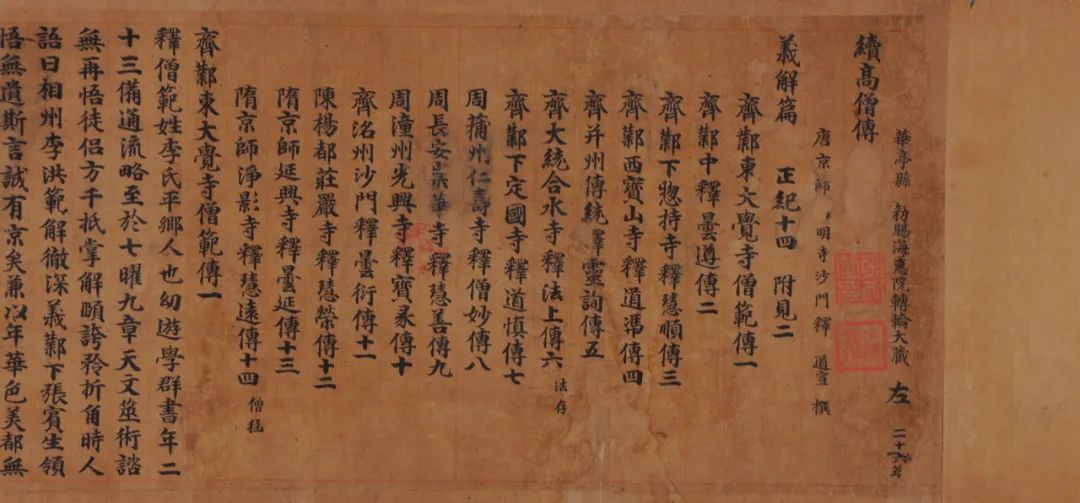 華亭縣 勑賜海惠院轉輪大藏 左 二十六紙
續高僧傳
唐京師 明寺沙門釋 道宣 撰
義解篇 正紀十四 附見二
齊鄴東大覺寺僧範傳一
齊鄴中釋曇遵傳二
齊鄴下惣持寺釋慧順傳三
齊鄴西寶山寺釋道馮傳四
齊并州傳統釋靈詢傳五
齊大統合水寺釋法上傳六 法存
齊鄴下定國寺釋道慎傳七
周蒱州仁壽寺釋僧妙傳八
周長安崇華寺釋慧善傳九
周潼州光興寺釋寶彖傳十
齊洺州沙門釋曇衍傳十一
陳楊都莊嚴寺釋慧榮傳十二
隋京師延興寺釋曇延傳十三
隋京師淨影寺釋慧遠傳十四 僧猛
齊鄴東大覺寺僧範傳一
釋僧範姓李氏平鄉人也幼遊學群書年二
十三備通流略至於七曜九章天文筮術諮
無再悟徒侶方千抵掌解頤誇矜折角時人
語曰相州李洪範解徹深義鄴下張賓生領
悟無遺斯言誠有京矣兼以年華色美都無